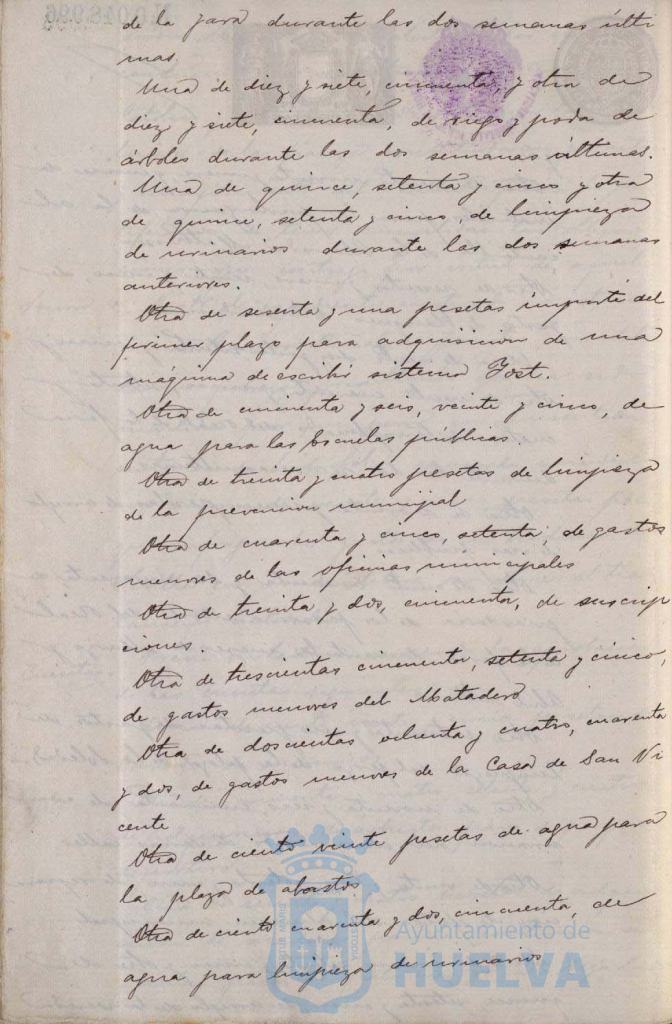 de la jara durante las dos semanas últi
mas.
Una de diez y siete, cincuenta, y otra de
diez y siete, cincuenta, de riego y poda de
árboles durante las dos semanas últimas.
Una de quince, setenta y cinco y otra
de quince, setenta y cinco, de limpieza
de urinarios durante las dos semanas
anteriores.
Otra de sesenta y una pesetas importe del
primer plazo para adquisicion de una
máquina de escribir sistema Yost.
Otra de cincuenta y seis, veinte y cinco, de
agua para las Escuelas públicas.
Otra de treinta y cuatro pesetas de limpieza
de la prevencion municipal
Otra de cuarenta y cinco, setenta, de gastos
menores de las oficinas municipales
Otra de treinta y dos, cincuenta, de suscrip
ciones.
Otra de trescientas cincuenta, setenta y cinco,
de gastos menores del Matadero
Otra de doscientas ochenta y cuatro, cuarenta
y dos, de gastos menores de la Casa de San Vi
cente
Otra de ciento veinte pesetas de agua para
la plaza de abastos
Otra de ciento cuarenta y dos, cincuenta, de
agua para limpieza de urinarios
Ayuntamiento de
HUELVA